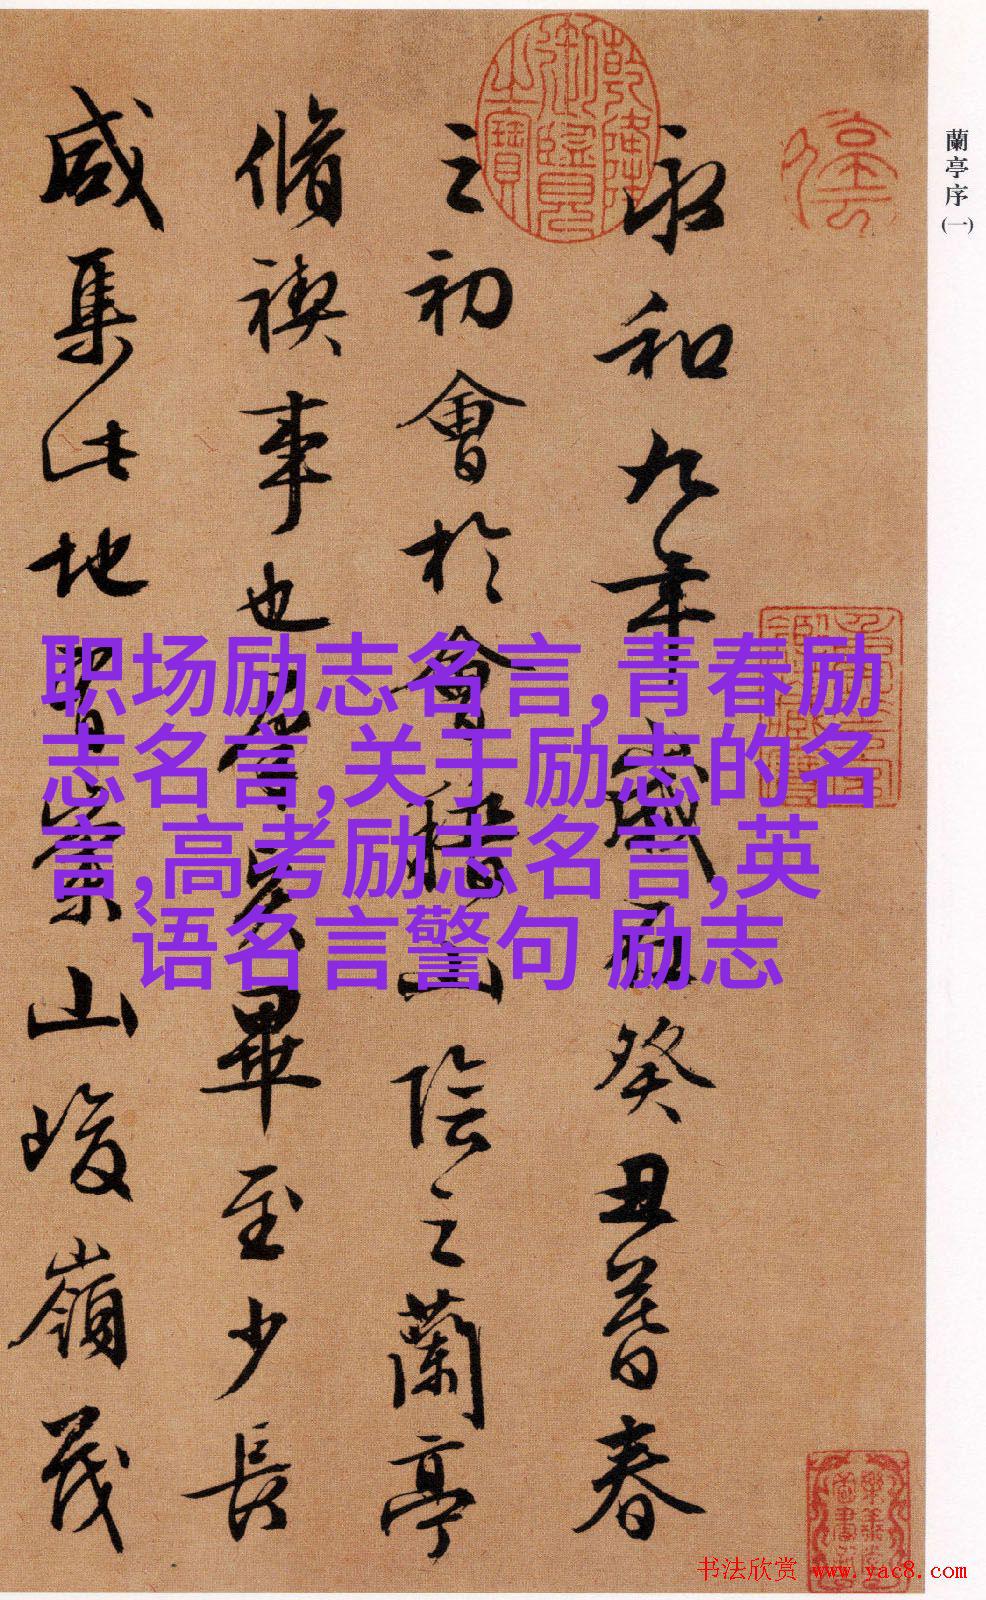 蘭亭序(一)
永和九年歲在癸丑暮春
之初會於會稽山陰之蘭亭
脩禊事也羣賢畢至少長
咸集此地有崇山峻嶺茂
乾隆御覽之寶
职场励志名言,青春励
志名言,关于励志的名
言,高考励志名言,英
语名言警句 励志
书法欣赏 www.yac8.com